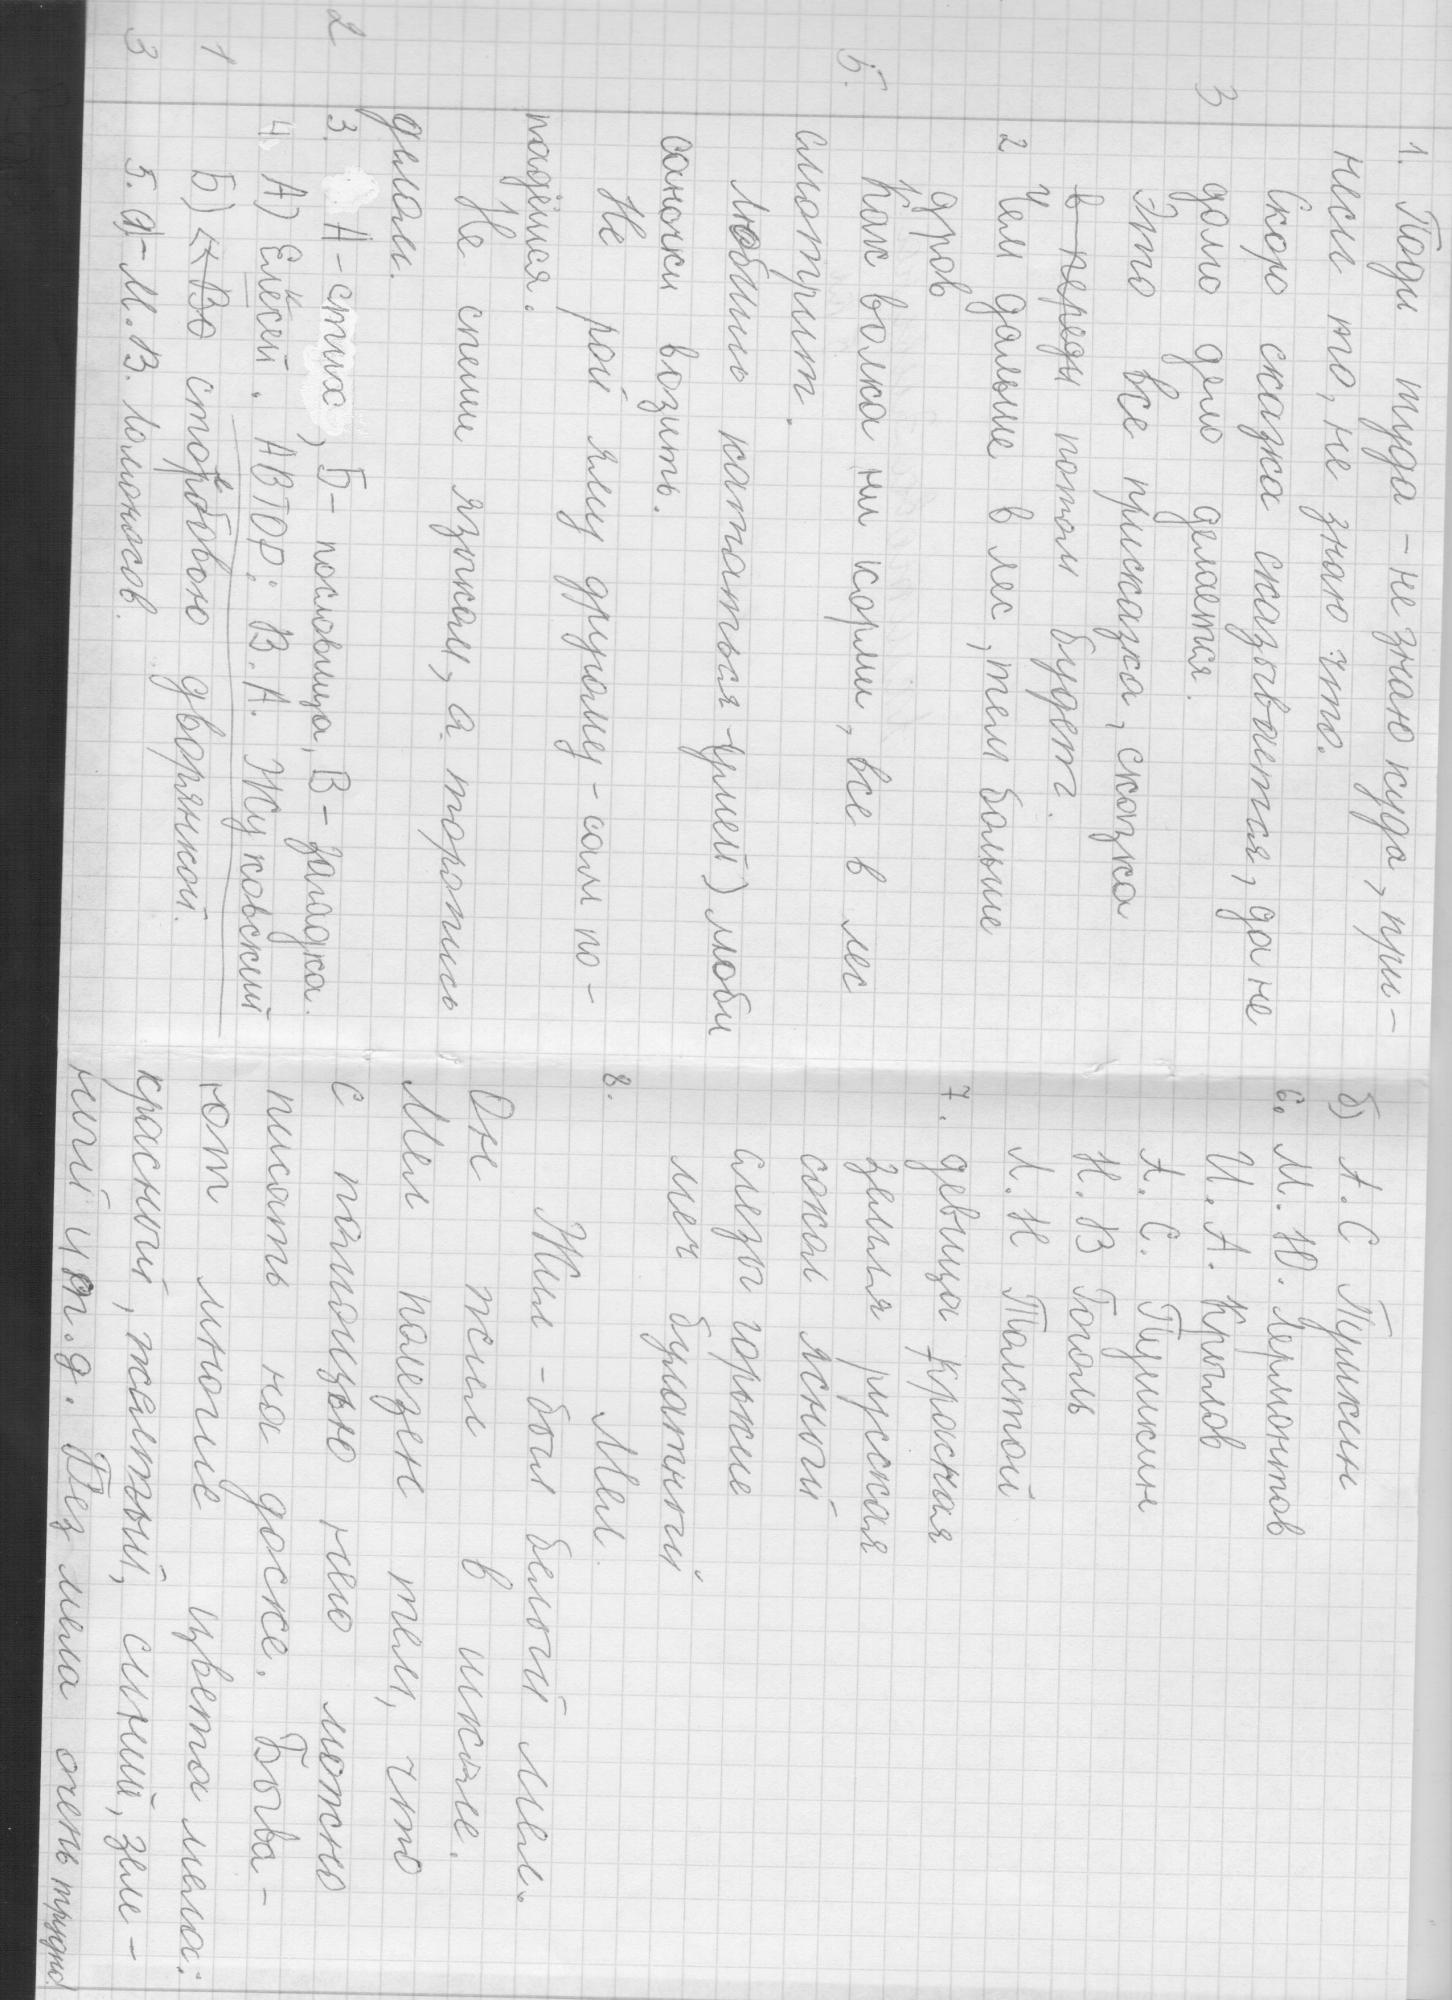 1. Поди туда - не знаю куда, при-
неси то, не знаю что.
3 Скоро сказка сказывается, да не
долго дело делается.
Это все присказка, сказка
в переди потом будет.
2 Чем дальше в лес, тем больше
дров
5. Как волка ни корми, все в лес
смотрит.
Любишь кататься - умей) люби
саночки возить.
Не рой яму другому - сам по-
падёшся.
Не спеши языком, а торопись
делом.
2 3. А - стих, Б - пословица, В - загадка.
4. А) Елесей. АВТОР: В. А. Жуковский
1 Б) сторбовою дворянкой.
3 5. а) - М. В. Ломоносов.
б) А. С Пушкин
6. М. Ю. Лермонтов
И. А. Крылов
А. С. Пушкин
Н. В Гоголь
Л. Н Толстой
7. девица красная
земля руская
сокол ясный
слезы горькие
меч булатный
8. Мел.
Жил - был белый мел.
Он жил в школе.
Мел полезен тем, что
с помощью него можно
писать на доске. Быва-
ют многие цвета мела:
красный, желтый, синий, зеле-
ный и т. д. Без мела очень трудно!